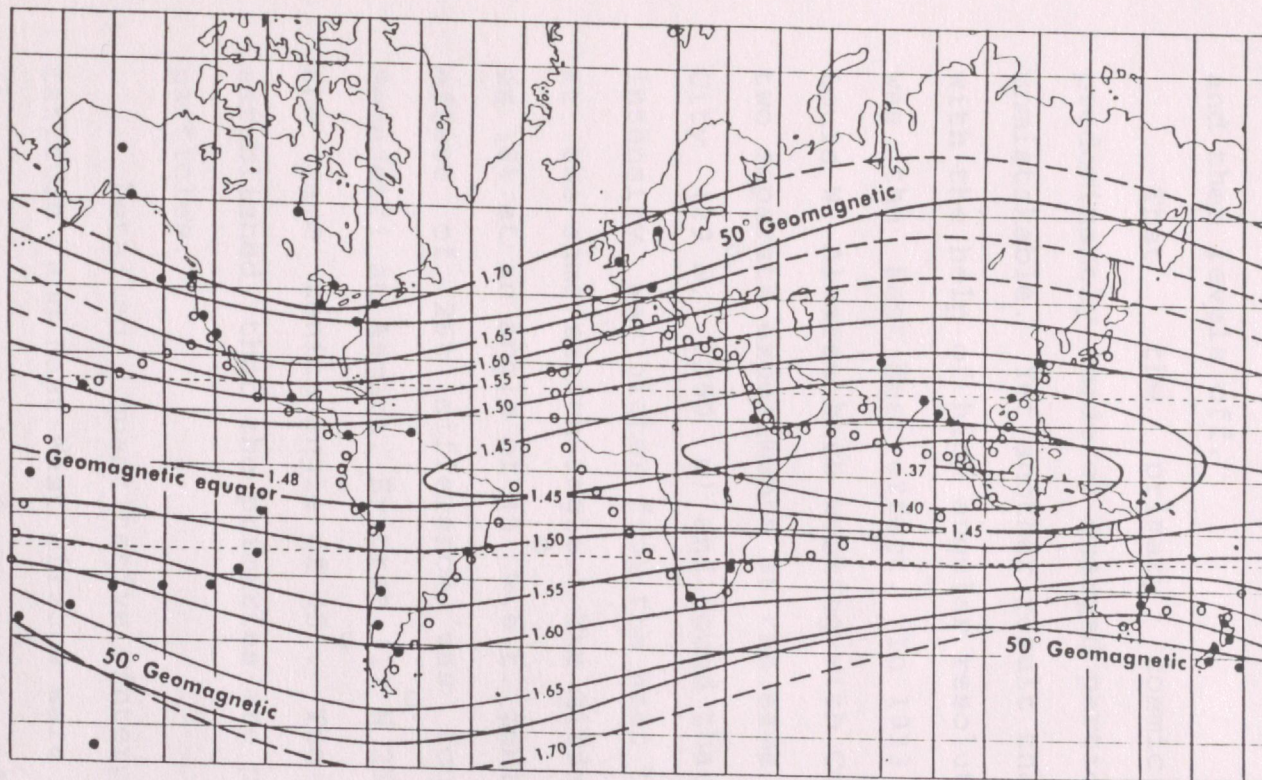 50° Geomagnetic
1.70
1.65
1.60
1.55
1.50
1.45
Geomagnetic equator
1.48
1.37
1.45
1.40
1.45
1.50
1.55
1.60
50° Geomagnetic
50° Geomagnetic
1.65
1.70